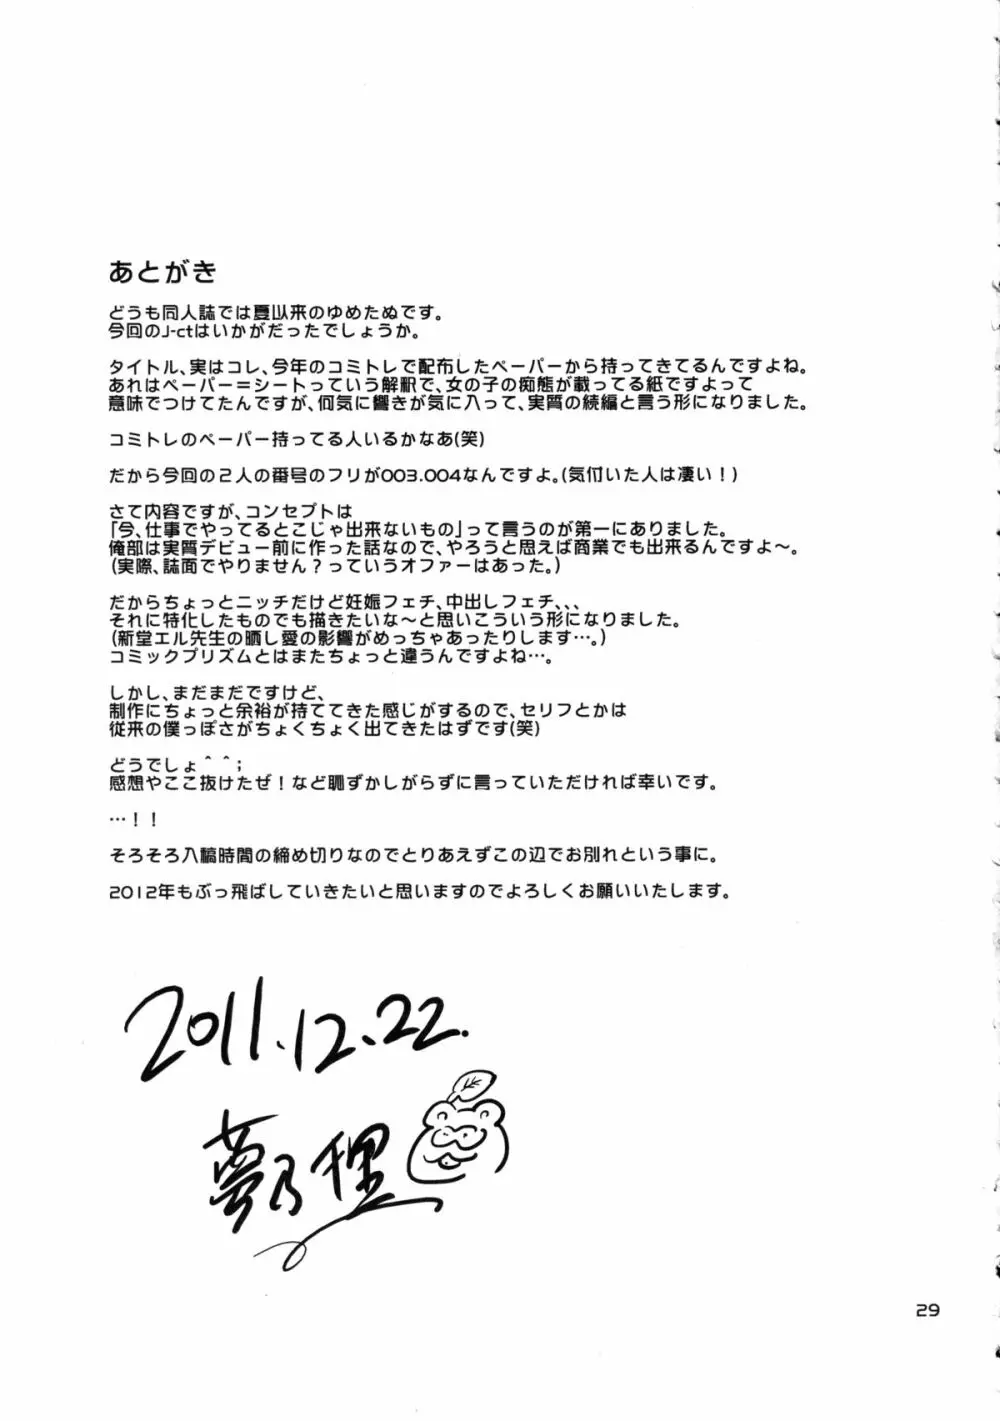 あとがき
どうも同人誌では夏以来のゆめたぬです。
今回のJ-ctはいかがだったでしょうか。
タイトル、実はコレ、今年のコミトレで配布したペーパーから持ってきてるんですよね。
あれはペーパー＝シートっていう解釈で、女の子の痴態が載ってる紙ですよって
意味でつけてたんですが、何気に響きが気に入って、実質の続編と言う形になりました。
コミトレのペーパー持ってる人いるかなあ(笑)
だから今回の２人の番号のフリが003.004なんですよ。(気付いた人は凄い！)
さて内容ですが、コンセプトは
「今、仕事でやってるとこじゃ出来ないもの」って言うのが第一にありました。
俺部は実質デビュー前に作った話なので、やろうと思えば商業でも出来るんですよ〜。
(実際、誌面でやりません？っていうオファーはあった。)
だからちょっとニッチだけど妊娠フェチ、中出しフェチ、、、
それに特化したものでも描きたいな〜と思いこういう形になりました。
(新堂エル先生の晒し愛の影響がめっちゃあったりします…。)
コミックプリズムとはまたちょっと違うんですよね…。
しかし、まだまだですけど、
制作にちょっと余裕が持ててきた感じがするので、セリフとかは
従来の僕っぽさがちょくちょく出てきたはずです(笑)
どうでしょ＾＾；
感想やここ抜けたぜ！など恥ずかしがらずに言っていただければ幸いです。
…！！
そろそろ入稿時間の締め切りなのでとりあえずこの辺でお別れという事に。
2012年もぶっ飛ばしていきたいと思いますのでよろしくお願いいたします。
2011.12.22.
夢乃狸
29